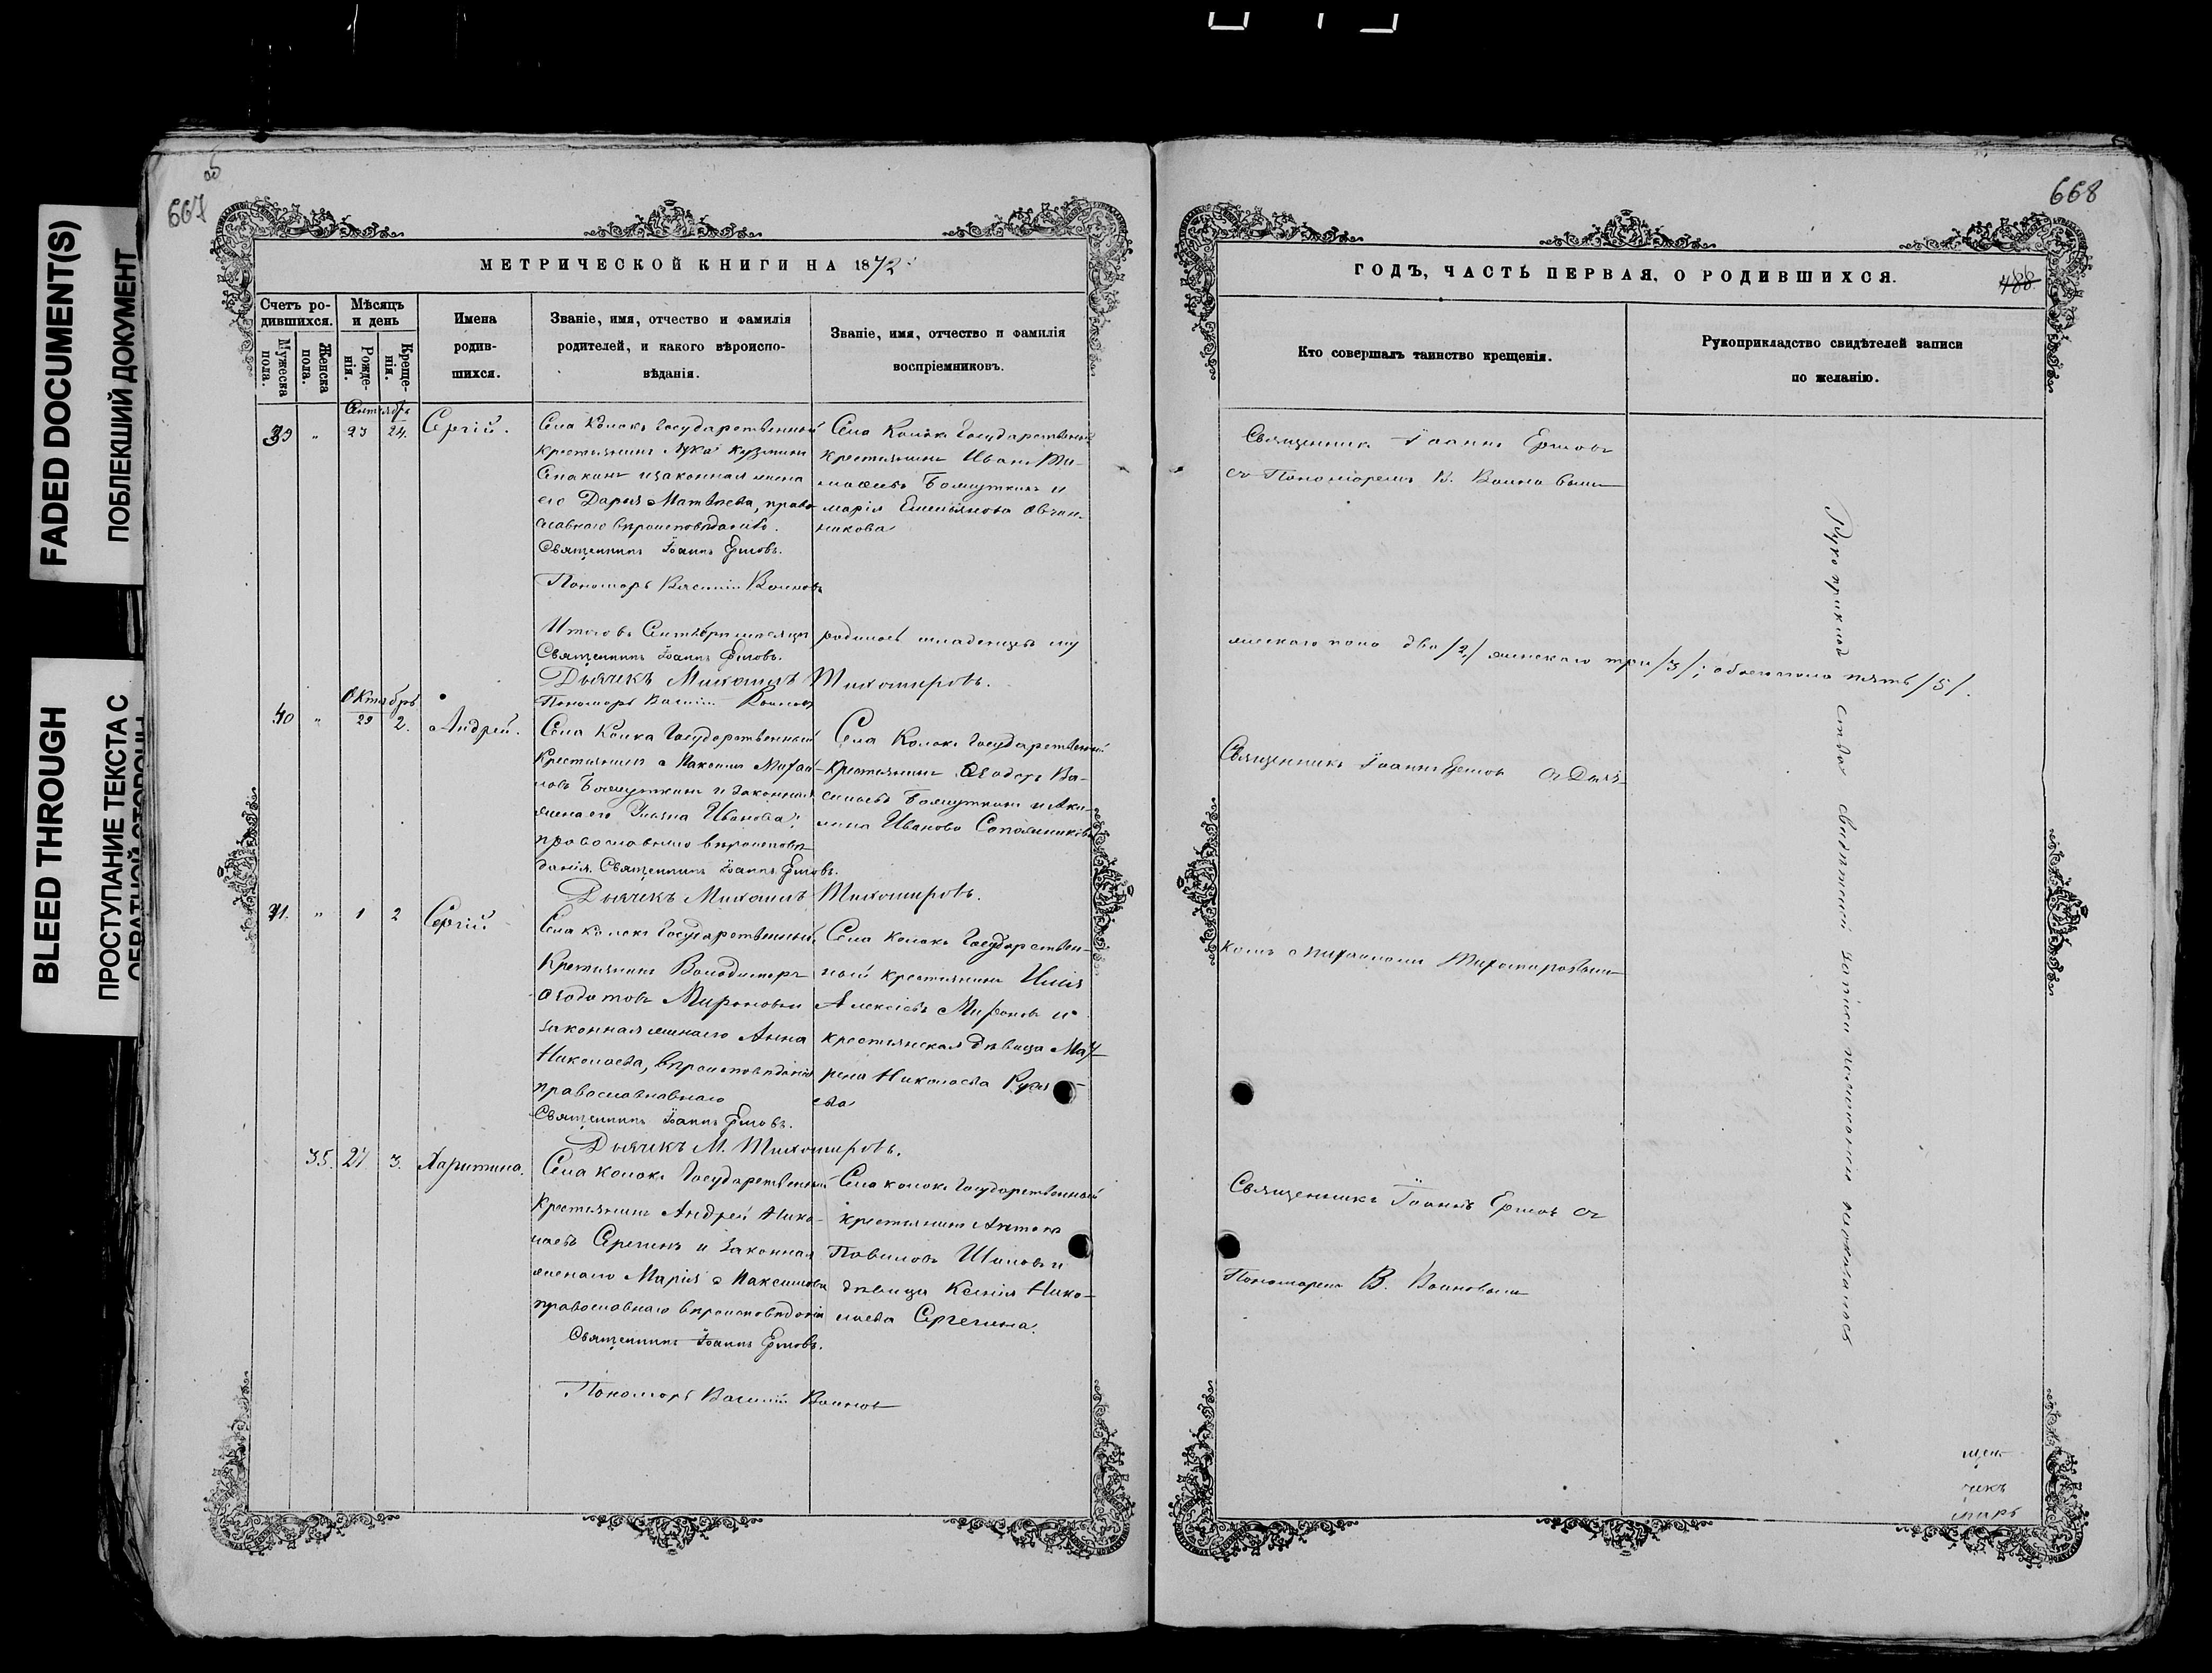 FADED DOCUMENT(S)
ПОБЛЕКШИЙ ДОКУМЕНТ
BLEED THROUGH
ПРОСТУПАНИЕ ТЕКСТА С
ОБРАТНОЙ СТОРОНЫ
667
МЕТРИЧЕСКОЙ КНИГИ НА 1872
Счетъ ро-
дившихся.
Мужеска
пола.
Женска
пола.
Мѣсяцъ
и день
Рожде-
нія.
Креще-
нія.
Имена
родив-
шихся.
Званіе, имя, отчество и фамилія
родителей, и какого вѣроиспо-
вѣданія.
Званіе, имя, отчество и фамилія
воспріемниковъ.
Сентябрь
39 " 23 24. Сергій.
Села Колокъ Государственный
крестьянинъ Лука Кузминъ
и законная жена
его Дарья Матвѣева, право
славнаго вѣроисповѣданія.
Священникъ Іоаннъ Ершовъ.
Пономарь Василій Воиновъ
Села Колокъ Государственный
крестьянинъ Иванъ Ти-
мофеевъ Бомушкинъ и
Марія Емельянова Овчин-
никова
Итого въ Сентябрѣ мѣсяцѣ родилось младенцевъ му
Священникъ Іоаннъ Ершовъ.
Дьячекъ Михаилъ Тихомировъ.
Пономарь Василій Воиновъ
Октябрь
40 " 29 2. Андрей.
Села Колка Государственный
Крестьянинъ Максимъ Михай-
ловъ Бомушкинъ и законная
жена его Ульяна Иванова,
православнаго вѣроисповѣ-
данія. Священникъ Іоаннъ Ершовъ.
Дьячекъ Михаилъ Тихомировъ.
Села Колокъ Государственный
Крестьянинъ Ѳеодоръ Ва-
сильевъ Бомушкинъ и Аки-
лина Иванова Сапожникова
41. " 1 2 Сергій
Села Колокъ Государственный
Крестьянинъ Володимеръ
Ѳедотовъ Мироновъ и
законная жена его Анна
Николаева, вѣроисповѣданія
православнаго
Священникъ Іоаннъ Ершовъ.
Дьячекъ М. Тихомировъ.
Села Колокъ Государствен-
ный крестьянинъ Илія
Алексіевъ Мироновъ и
крестьянская дѣвица Мат-
рена Николаева
ева
35. 27. 3. Харитина.
Села Колокъ Государственный
Крестьянинъ Андрей Нико-
лаевъ Сергеинъ и законная
жена его Марія Максимова
православнаго вѣроисповѣданія
Священникъ Іоаннъ Ершовъ.
Пономарь Василій Воиновъ
Села Колокъ Государственный
крестьянинъ Антонъ
Павиловъ Шиловъ и
дѣвица Ксенія Нико-
лаева Сергеина.
668
ГОДЪ, ЧАСТЬ ПЕРВАЯ, О РОДИВШИХСЯ.
488
Кто совершалъ таинство крещенія.
Рукоприкладство свидѣтелей записи
по желанію.
Священникъ Іоаннъ Ершовъ
съ Пономаремъ В. Воиновымъ
жескаго пола два /2/ женскаго три /3/; обоего пола пять /5/.
Священникъ Іоаннъ Ершовъ съ Дьяч-
комъ Михаиломъ Тихомировымъ
Священникъ Іоаннъ Ершовъ съ
Пономаремъ В. Воиновымъ
Рукоприкладства свидѣтелей записи
чекъ
марь